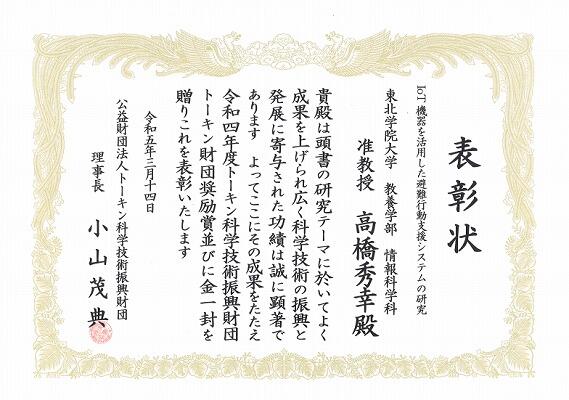 表彰状
IoT機器を活用した避難行動支援システムの研究
東北学院大学 教養学部 情報科学科
准教授 高橋秀幸殿
貴殿は頭書の研究テーマに於いてよく
成果を上げられ広く科学技術の振興と
発展に寄与された功績は誠に顕著で
あります よってここにその成果をたたえ
令和四年度トーキン科学技術振興財団
トーキン財団奨励賞並びに金一封を
贈りこれを表彰いたします
令和五年三月十四日
公益財団法人トーキン科学技術振興財団
理事長 小山茂典